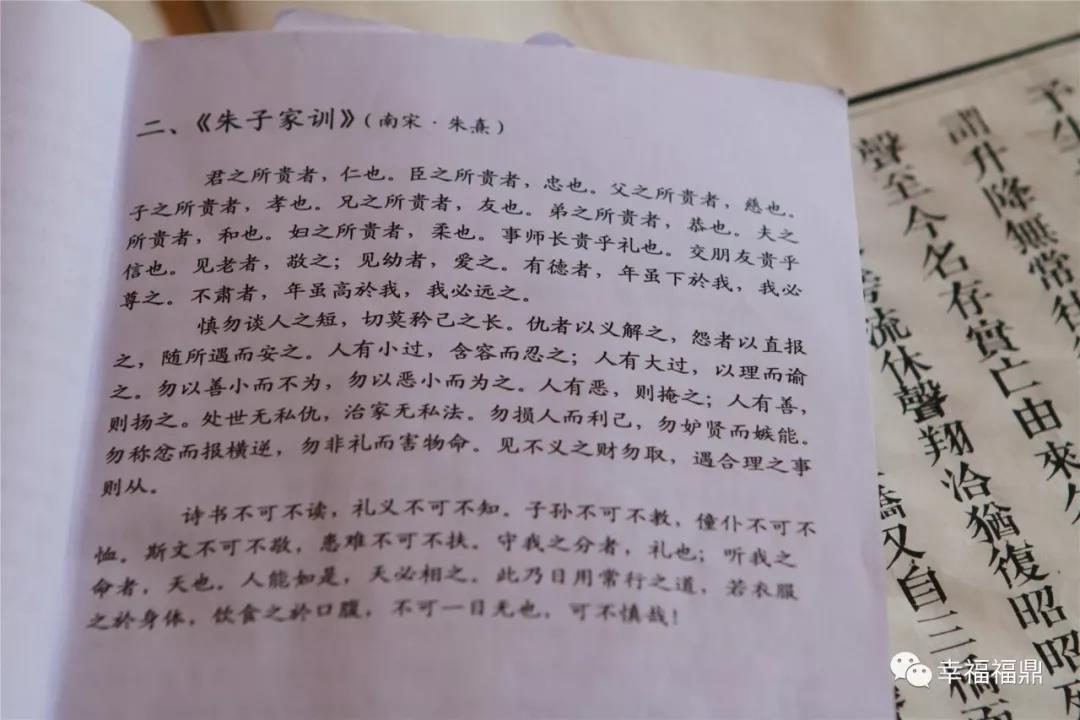 二、《朱子家训》(南宋·朱熹)
君之所贵者，仁也。臣之所贵者，忠也。父之所贵者，慈也。
子之所贵者，孝也。兄之所贵者，友也。弟之所贵者，恭也。夫之
所贵者，和也。妇之所贵者，柔也。事师长贵乎礼也。交朋友贵乎
信也。见老者，敬之；见幼者，爱之。有德者，年虽下於我，我必
尊之。不肃者，年虽高於我，我必远之。
慎勿谈人之短，切莫矜己之长。仇者以义解之，怨者以直报
之，随所遇而安之。人有小过，含容而忍之；人有大过，以理而谕
之。勿以善小而不为，勿以恶小而为之。人有恶，则掩之；人有善，
则扬之。处世无私仇，治家无私法。勿损人而利己，勿妒贤而嫉能。
勿称忿而报横逆，勿非礼而害物命。见不义之财勿取，遇合理之事
则从。
诗书不可不读，礼义不可不知。子孙不可不教，僮仆不可不
恤。斯文不可不敬，患难不可不扶。守我之分者，礼也；听我之
命者，天也。人能如是，天必相之。此乃日用常行之道，若衣服
之於身体，饮食之於口腹，不可一日无也，可不慎哉！
予生
謂升降無常往
聲至今名存實亡由來久
流休聲翔洽猶復昭昭
橋又自三橋
幸福福鼎